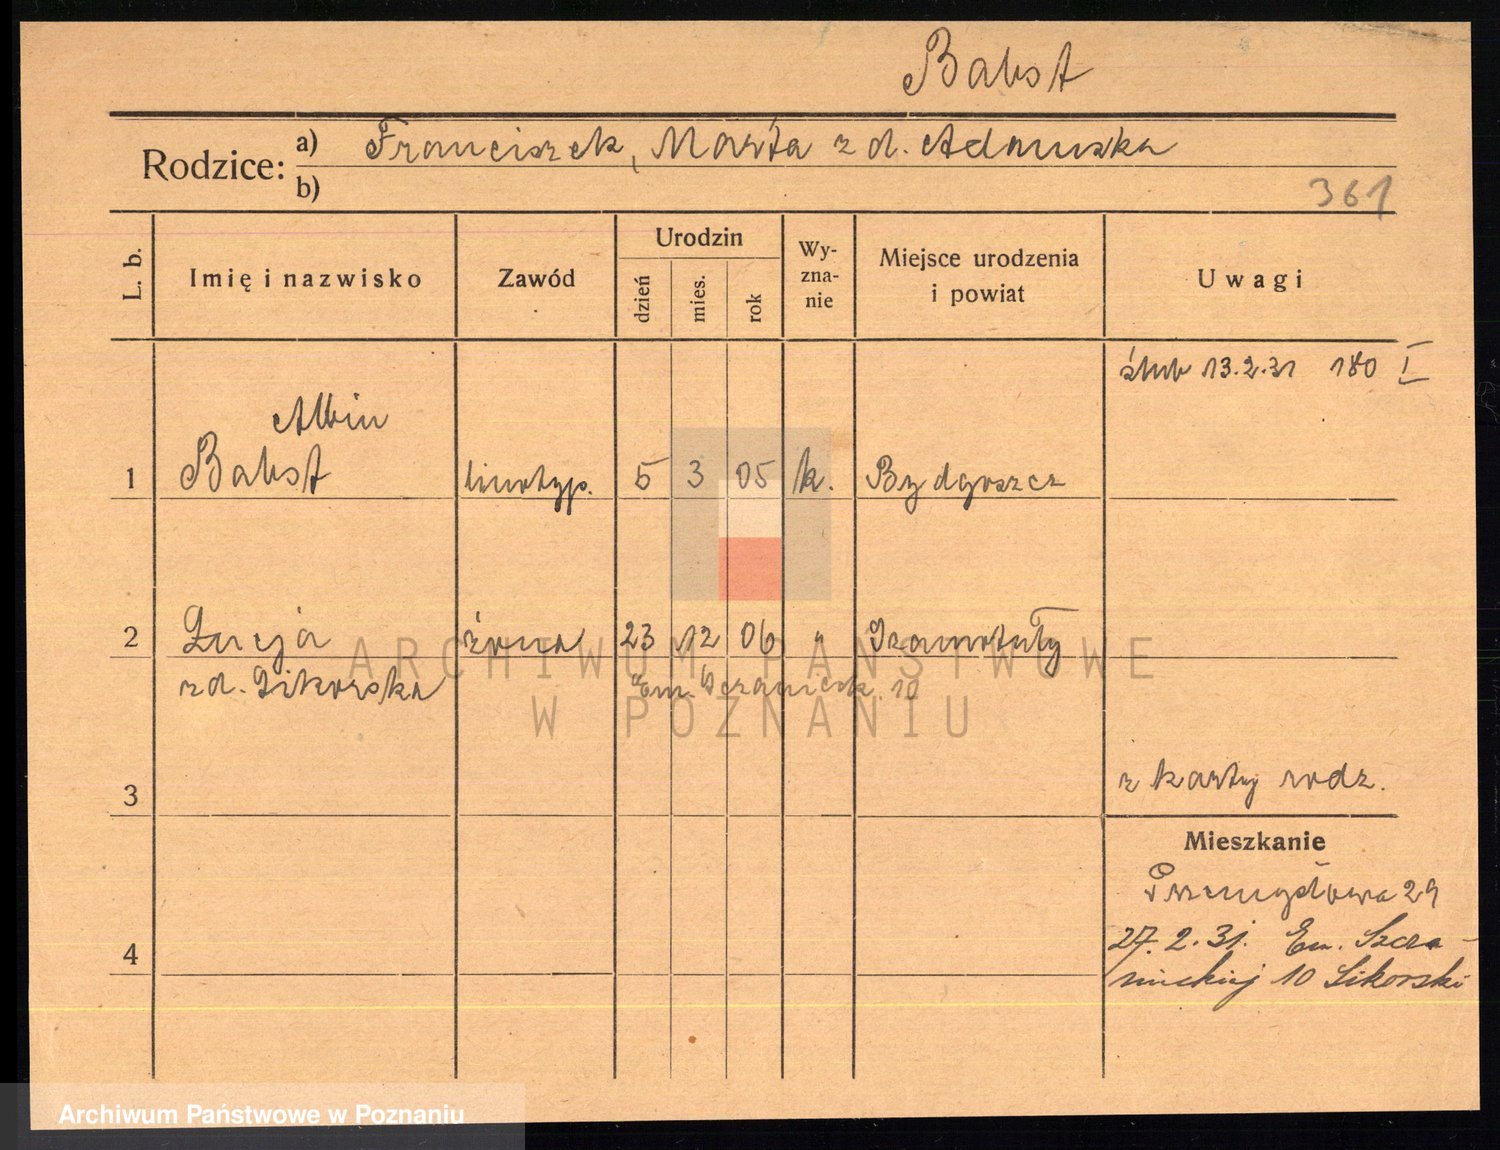 Babst
Rodzice: a) Franciszek, Marta z d. Adamska
b)
361
L. b.
Imię i nazwisko
Zawód
Urodzin
dzień
mies.
rok
Wy-
zna-
nie
Miejsce urodzenia
i powiat
Uwagi
ślub 13.2.31 180 I
Albin
1 Babst linotyp. 5 3 05 k. Bydgoszcz
2 Łucja żona 23 12 06 " Szamotuły
zd. Sikorska Em. Sczanieck. 10
3 z karty rodz.
Mieszkanie
Przemysłowa 29
4 27.2.31. Em. Szcza-
nieckiej 10 Sikorski
ARCHIWUM PAŃSTWOWE
W POZNANIU
Archiwum Państwowe w Poznaniu